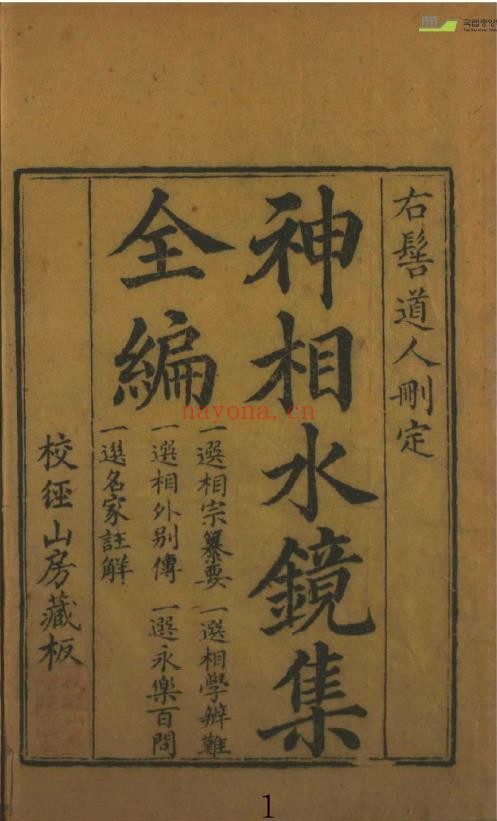 右髻道人刪定
神相水鏡集
全編
一選相宗纂要 一選相學辨難
一選相外别傳 一選永樂百問
一選名家註解
校經山房藏板
nayona.cn
1